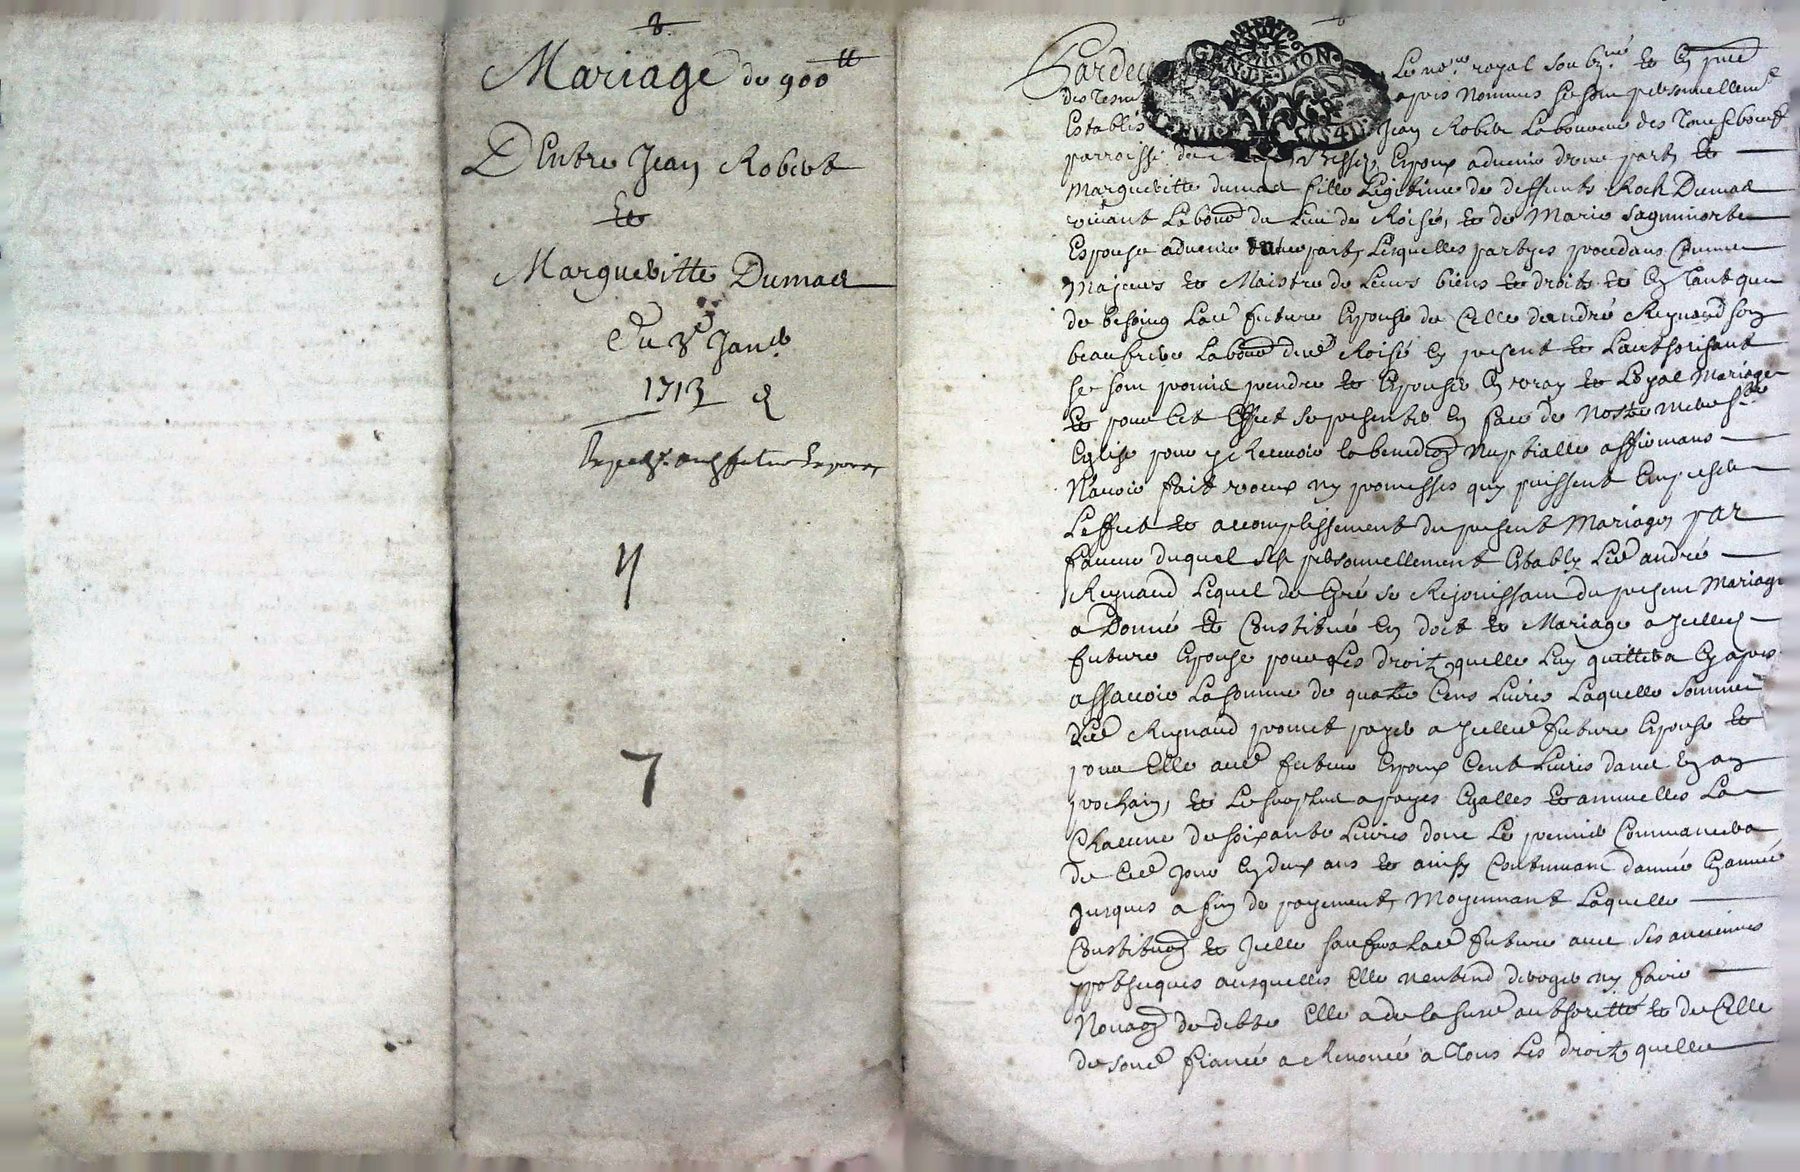 8.
Mariage de 900tt
D'Entre Jean Robert
Et
Margueritte Dumas
Du 8e Janer
1713
Expedié aux futurs Epoux
7
GEN. DE LION
Pardevant Le nore royal soubzné et en pnce
des Tesm apres nommes se sont personnellemt
Establis Jean Robert Laboureur des
parroisse de Epoux advenir d'une part, et
Margueritte dumas fille Légitime de deffunts Roch Dumas
vivant Labour du Lieu de Roisé, et de Marie Sagnimorte
Espouse advenir dautrepart, Lesquelles partyes procedans Comme
Majeurs et Maistre de Leurs biens et droits et En Tant que
de besoing Lade future Epouse de Celle dandré Reynaud son
beaufrere Labour dud Roisé En present et Lauthorisant
se sont promis prendre et Epouser En vray et Loyal Mariage
Et pour Cet Effect se presenter En face de Nostre mere Ste
Eglise pour y Recevoir la benedicon Nuptialle affirmans
N'avoir fait voeux ny promesses quy puissent Empescher
L'effect et accomplissement du present Mariage, par
faveur duquel s'est personnellement Estably Led andré
Reynaud Lequel de Gré se Rejouissant du present Mariage
a Donné et Constitué En dot et Mariage a Jcelle
future Epouse pour Les droitz quelle Luy quittera Cy apres
assavoir La somme de quatre Cens Livres Laquelle somme
Led Reynaud promet payer a Jcelle future Epouse et
pour Elle aud futur Epoux Cent Livres dans un an
prochain, et Le surplus a payes Egalles et annuelles La
Chacune de soixante Livres dont Le premier Commancera
de Ced Jour En deux ans et ainsy Continuant dannée En année
Jusques a fin de payement, Moyennant Laquelle
Constituon et Jcelle sauf a Lad future avec ses anciennes
ypotheques ausquelles Elle n'entend deroger ny faire
Novaon de debte Elle a de la susd authoritté et de Celle
de sond fiancé a Renoncé a Tous Les droitz quelle